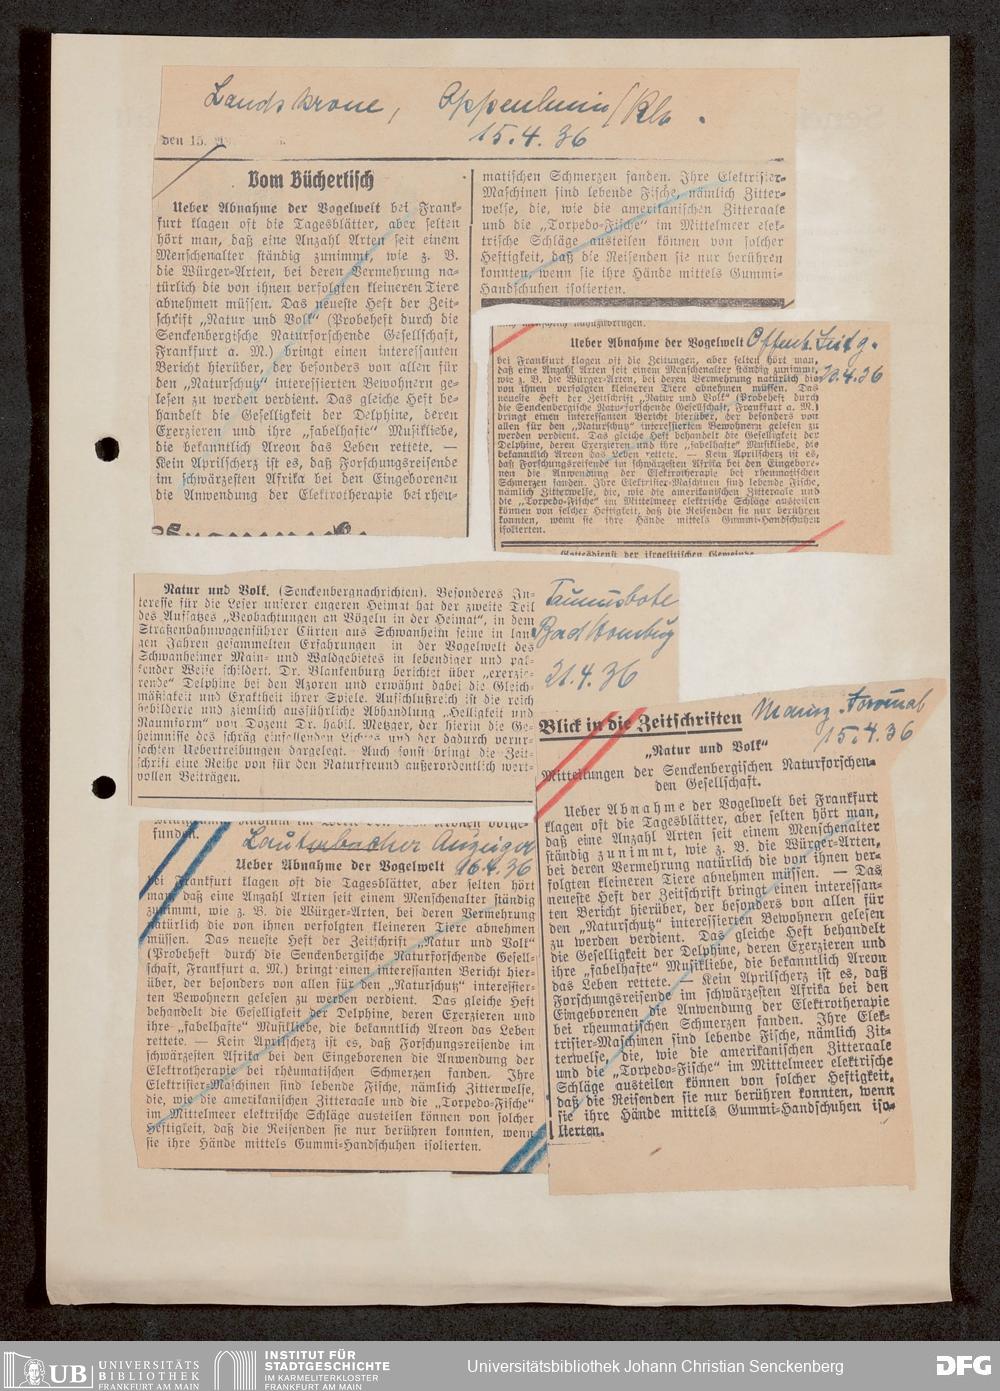 Landskrone, Oppenheim/Rh.
15.4.36
den 15.
Vom Büchertisch
Ueber Abnahme der Vogelwelt bei Frank-
furt klagen oft die Tagesblätter, aber selten
hört man, daß eine Anzahl Arten seit einem
Menschenalter ständig zunimmt, wie z. B.
die Würger-Arten, bei deren Vermehrung na-
türlich die von ihnen verfolgten kleineren Tiere
abnehmen müssen. Das neueste Heft der Zeit-
schrift „Natur und Volk“ (Probeheft durch die
Senckenbergische Naturforschende Gesellschaft,
Frankfurt a. M.) bringt einen interessanten
Bericht hierüber, der besonders von allen für
den „Naturschutz“ interessierten Bewohnern ge-
lesen zu werden verdient. Das gleiche Heft be-
handelt die Geselligkeit der Delphine, deren
Exerzieren und ihre „fabelhafte“ Musikliebe,
die bekanntlich Areon das Leben rettete. —
Kein Aprilscherz ist es, daß Forschungsreisende
im schwärzesten Afrika bei den Eingeborenen
die Anwendung der Elektrotherapie bei rheu-
matischen Schmerzen fanden. Ihre Elektrisier-
Maschinen sind lebende Fische, nämlich Zitter-
welse, die, wie die amerikanischen Zitteraale
und die „Torpedo-Fische“ im Mittelmeer elek-
trische Schläge austeilen können von solcher
Heftigkeit, daß die Reisenden sie nur berühren
konnten, wenn sie ihre Hände mittels Gummi-
Handschuhen isolierten.
Ueber Abnahme der Vogelwelt Offenb. Zeitg.
20.4.36
bei Frankfurt klagen oft die Zeitungen, aber selten hört man,
daß eine Anzahl Arten seit einem Menschenalter ständig zunimmt,
wie z. B. die Würger-Arten, bei deren Vermehrung natürlich die
von ihnen verfolgten kleineren Tiere abnehmen müssen. Das
neueste Heft der Zeitschrift „Natur und Volk“ (Probeheft durch
die Senckenbergische Naturforschende Gesellschaft, Frankfurt a. M.)
bringt einen interessanten Bericht hierüber, der besonders von
allen für den „Naturschutz“ interessierten Bewohnern gelesen zu
werden verdient. Das gleiche Heft behandelt die Geselligkeit der
Delphine, deren Exerzieren und ihre „fabelhafte“ Musikliebe, die
bekanntlich Areon das Leben rettete. — Kein Aprilscherz ist es,
daß Forschungsreisende im schwärzesten Afrika bei den Eingebore-
nen die Anwendung der Elektrotherapie bei rheumatischen
Schmerzen fanden. Ihre Elektrisier-Maschinen sind lebende Fische,
nämlich Zitterwelse, die, wie die amerikanischen Zitteraale und
die „Torpedo-Fische“ im Mittelmeer elektrische Schläge austeilen
können von solcher Heftigkeit, daß die Reisenden sie nur berühren
konnten, wenn sie ihre Hände mittels Gummi-Handschuhen
isolierten.
Gottesdienst der israelitischen Gemeinde
Natur und Volk. (Senckenbergnachrichten). Besonderes In-
teresse für die Leser unserer engeren Heimat hat der zweite Teil
des Aufsatzes „Beobachtungen an Vögeln in der Heimat“, in dem
Straßenbahnwagenführer Cürten aus Schwanheim seine in lan-
gen Jahren gesammelten Erfahrungen in der Vogelwelt des
Schwanheimer Main- und Waldgebietes in lebendiger und pak-
kender Weise schildert. Dr. Blankenburg berichtet über „exerzie-
rende“ Delphine bei den Azoren und erwähnt dabei die Gleich-
mäßigkeit und Exaktheit ihrer Spiele. Aufschlußreich ist die reich
bebilderte und ziemlich ausführliche Abhandlung „Helligkeit und
Raumform“ von Dozent Dr. habil. Metzger, der hierin die Ge-
heimnisse des schräg einfallenden Lichtes und der dadurch verur-
sachten Uebertreibungen dargelegt. Auch sonst bringt die Zeit-
schrift eine Reihe von für den Naturfreund außerordentlich wert-
vollen Beiträgen.
Taunusbote
Bad Homburg
21.4.36
Mainz. Journal
15.4.36
Blick in die Zeitschriften
„Natur und Volk“
Mitteilungen der Senckenbergischen Naturforschen-
den Gesellschaft.
Ueber Abnahme der Vogelwelt bei Frankfurt
klagen oft die Tagesblätter, aber selten hört man,
daß eine Anzahl Arten seit einem Menschenalter
ständig zunimmt, wie z. B. die Würger-Arten,
bei deren Vermehrung natürlich die von ihnen ver-
folgten kleineren Tiere abnehmen müssen. — Das
neueste Heft der Zeitschrift bringt einen interessan-
ten Bericht hierüber, der besonders von allen für
den „Naturschutz“ interessierten Bewohnern gelesen
zu werden verdient. Das gleiche Heft behandelt
die Geselligkeit der Delphine, deren Exerzieren und
ihre „fabelhafte“ Musikliebe, die bekanntlich Areon
das Leben rettete. — Kein Aprilscherz ist es, daß
Forschungsreisende im schwärzesten Afrika bei den
Eingeborenen die Anwendung der Elektrotherapie
bei rheumatischen Schmerzen fanden. Ihre Elek-
trisier-Maschinen sind lebende Fische, nämlich Zit-
terwelse, die, wie die amerikanischen Zitteraale
und die „Torpedo-Fische“ im Mittelmeer elektrische
Schläge austeilen können von solcher Heftigkeit,
daß die Reisenden sie nur berühren konnten, wenn
sie ihre Hände mittels Gummi-Handschuhen iso-
lierten.
funden.
Lauterbacher Anzeiger
Ueber Abnahme der Vogelwelt 16.4.36
bei Frankfurt klagen oft die Tagesblätter, aber selten hört
man, daß eine Anzahl Arten seit einem Menschenalter ständig
zunimmt, wie z. B. die Würger-Arten, bei deren Vermehrung
natürlich die von ihnen verfolgten kleineren Tiere abnehmen
müssen. Das neueste Heft der Zeitschrift „Natur und Volk“
(Probeheft durch die Senckenbergische Naturforschende Gesell-
schaft, Frankfurt a. M.) bringt einen interessanten Bericht hier-
über, der besonders von allen für den „Naturschutz“ interessier-
ten Bewohnern gelesen zu werden verdient. Das gleiche Heft
behandelt die Geselligkeit der Delphine, deren Exerzieren und
ihre „fabelhafte“ Musikliebe, die bekanntlich Areon das Leben
rettete. — Kein Aprilscherz ist es, daß Forschungsreisende im
schwärzesten Afrika bei den Eingeborenen die Anwendung der
Elektrotherapie bei rheumatischen Schmerzen fanden. Ihre
Elektrisier-Maschinen sind lebende Fische, nämlich Zitterwelse,
die, wie die amerikanischen Zitteraale und die „Torpedo-Fische“
im Mittelmeer elektrische Schläge austeilen können von solcher
Heftigkeit, daß die Reisenden sie nur berühren konnten, wenn
sie ihre Hände mittels Gummi-Handschuhen isolierten.
UB UNIVERSITÄTS
BIBLIOTHEK
FRANKFURT AM MAIN
INSTITUT FÜR
STADTGESCHICHTE
IM KARMELITERKLOSTER
FRANKFURT AM MAIN
Universitätsbibliothek Johann Christian Senckenberg
DFG